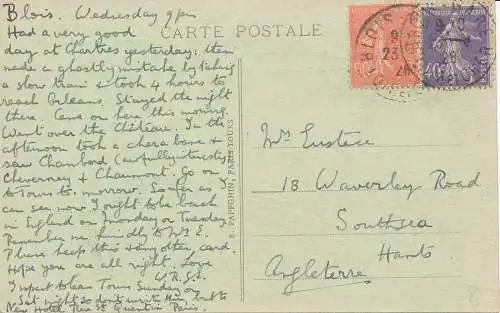 Blois. Wednesday 9pm
Had a very good
day at Chartres yesterday: then
made a ghastly mistake by taking
a slow train & took 4 hours to
reach Orleans. Stayed the night
there. Came on here this morning.
Went over the Château. In the
afternoon took a chara banc &
saw Chambord (awfully interesting)
Cheverney & Chaumont. Go on
to Tours to-morrow. So far as I
can see now I ought to be back
in England on Monday or Tuesday.
Remember me kindly to Mr E.
Please keep this & any other card.
Hope you are all right. Love
W.R.S.E.
I expect to leave Tours Sunday or
Sat night so don't write there, but to
New Hotel Rue St Quentin Paris.
CARTE POSTALE
E. PAPEGHIN, PARIS-TOURS
BLOIS
23
Mrs Eustace
18 Waverley Road
Southsea
Hants
Angleterre